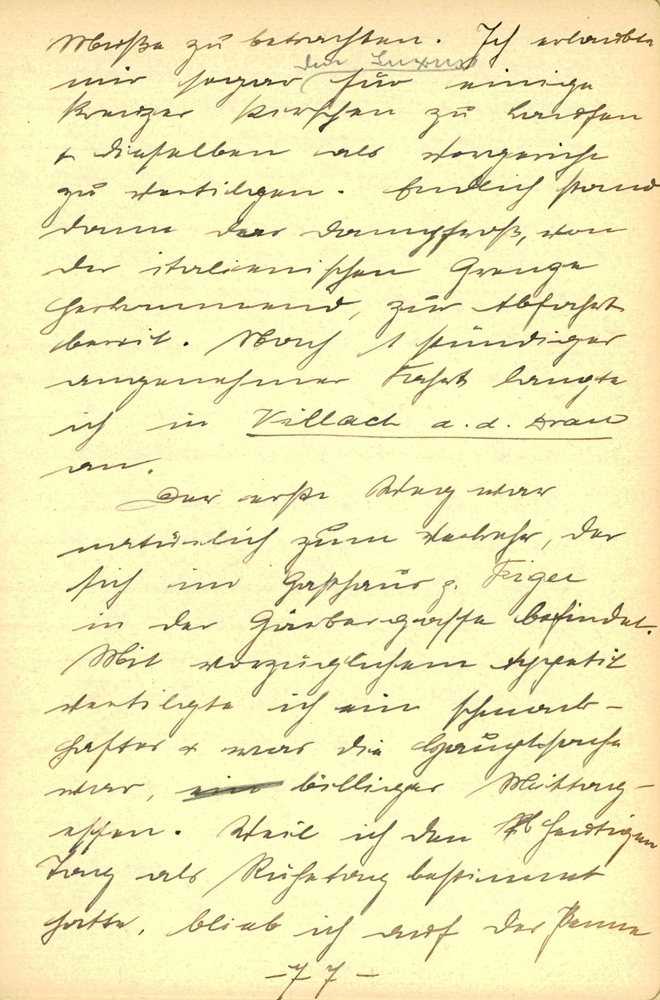 Muße zu betrachten. Ich erlaubte
den Luxus
mir sogar für einige
Kreuzer Kirschen zu kaufen
& dieselben als Vorgericht
zu vertilgen. Endlich stand
dann das Dampfroß, von
der italienischen Grenze
herkommend, zur Abfahrt
bereit. Nach 1 stündiger
angenehmer Fahrt langte
ich in Villach a. d. Drau
an.
Der erste Weg war
natürlich zum Verkehr, der
sich im Gasthaus z.
in der Gärbergasse befindet.
Mit vorzüglichem Appetit
vertilgte ich ein schmack-
haftes & was die Hauptsache
war, ein billiges Mittag-
essen. Weil ich den heutigen
Tag als Ruhetag bestimmt
hatte, blieb ich auf der Penne
- 77 -